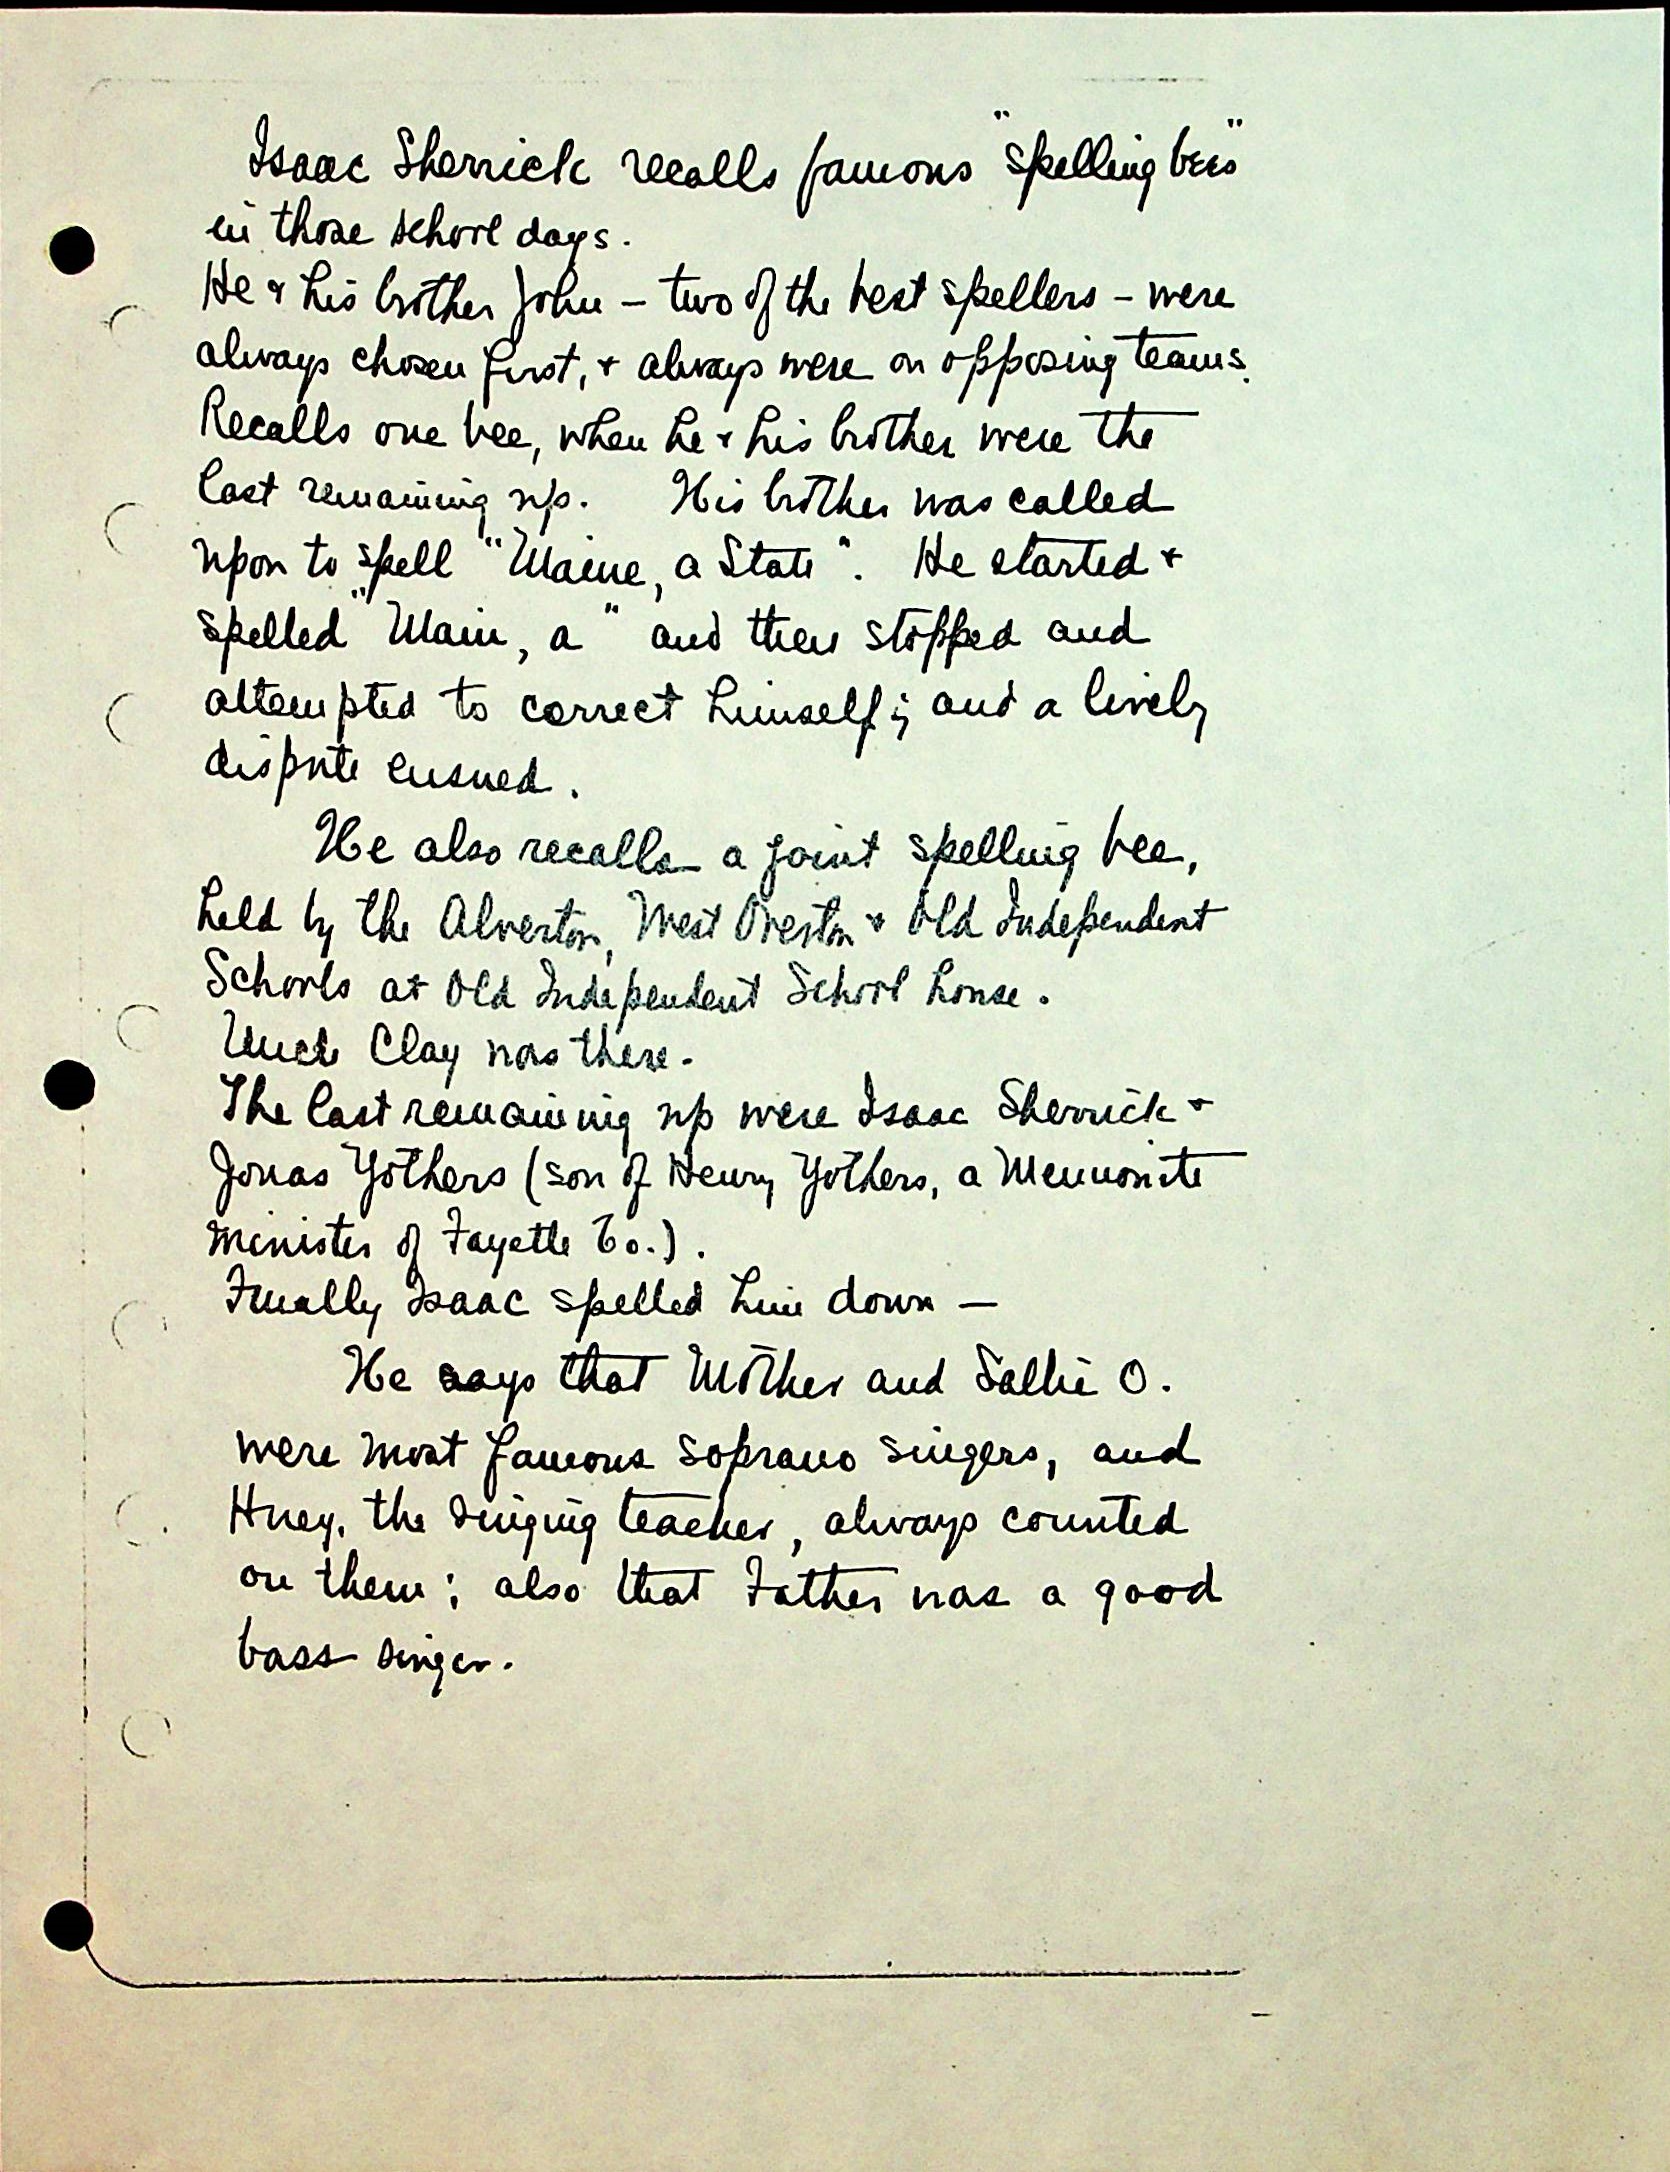 Isaac Sherrick recalls famous "spelling bees"
in those school days.
He & his brother John – two of the best spellers – were
always chosen first, & always were on opposing teams.
Recalls one bee, when he & his brother were the
last remaining up. His brother was called
upon to spell "Maine, a State". He started &
spelled "Main, a" and then stopped and
attempted to correct himself; and a lively
dispute ensued.
He also recalls a joint spelling bee,
held by the Alverton, West Overton & Old Independent
Schools at Old Independent School house.
Uncle Clay was there.
The last remaining up were Isaac Sherrick &
Jonas Yothers (son of Henry Yothers, a Mennonite
minister of Fayette Co.).
Finally Isaac spelled him down —
He says that Mother and Sallie O.
were most famous soprano singers, and
Huey, the singing teacher, always counted
on them; also that Father was a good
bass singer.